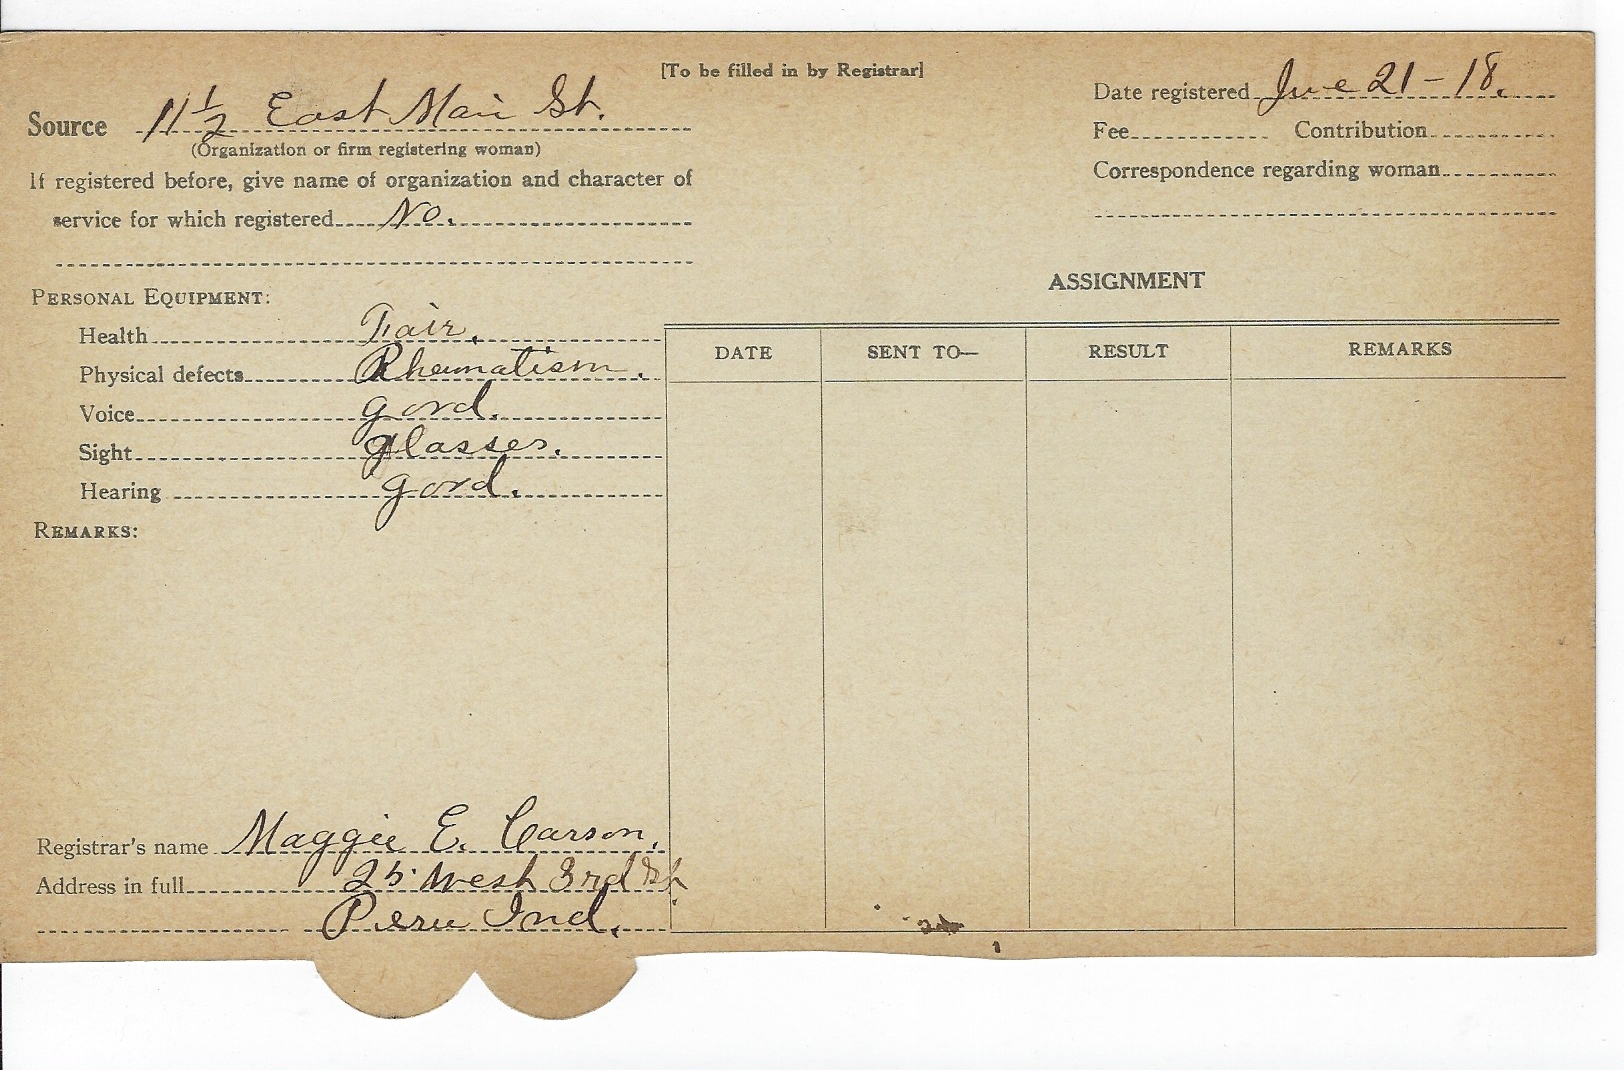 [To be filled in by Registrar]
Source 11 1/2 East Main St.
(Organization or firm registering woman)
If registered before, give name of organization and character of
service for which registered No.
Date registered June 21-18.
Fee Contribution
Correspondence regarding woman
PERSONAL EQUIPMENT:
Health Fair.
Physical defects Rheumatism.
Voice good.
Sight glasses.
Hearing good.
REMARKS:
ASSIGNMENT
DATE SENT TO— RESULT REMARKS
Registrar's name Maggie E. Carson.
Address in full 25 West 3rd St.
Peru Ind.